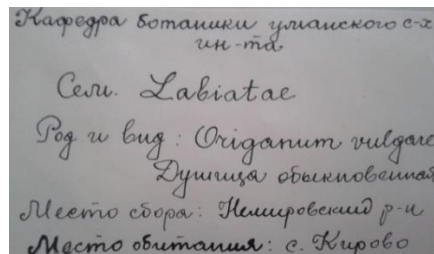 Кафедра ботаники уманского с-х
ин-та
Сем. Labiatae
Род и вид: Origanum vulgare
Душица обыкновенная
Место сбора: Немировский р-н
Место обитания: с. Кирово